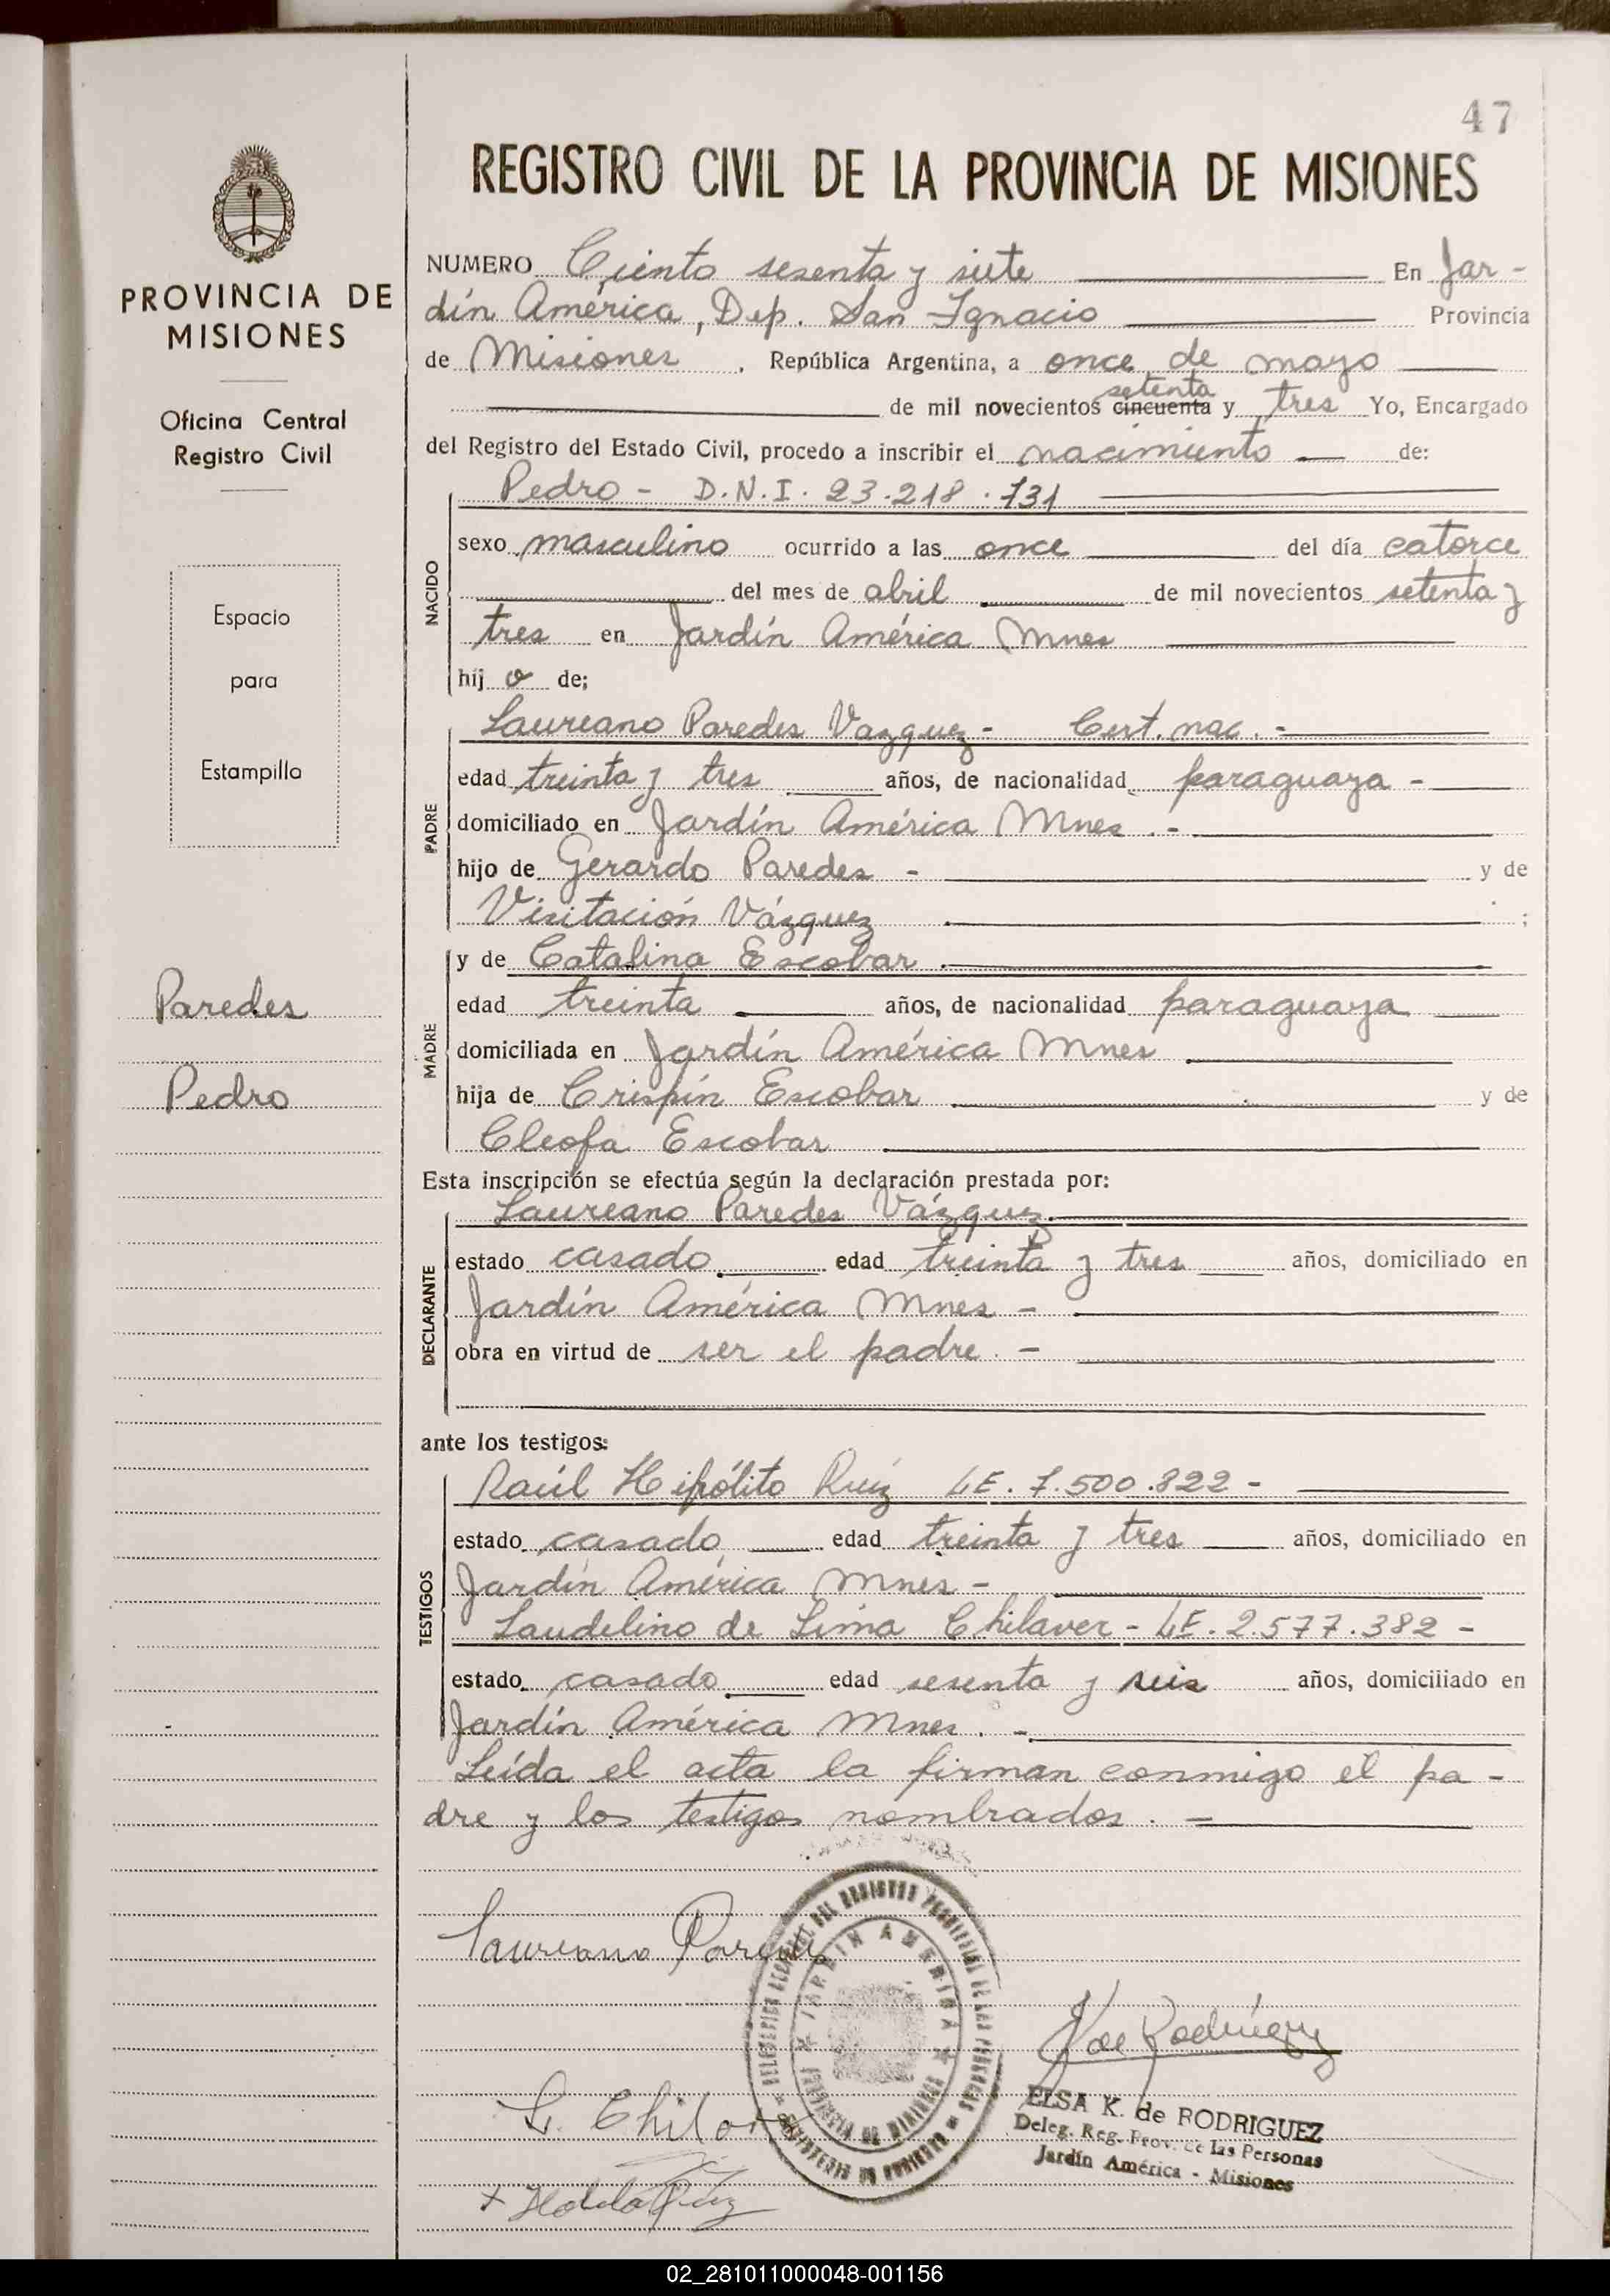 47
REGISTRO CIVIL DE LA PROVINCIA DE MISIONES
PROVINCIA DE
MISIONES
Oficina Central
Registro Civil
Espacio
para
Estampilla
Paredes
Pedro
NUMERO Ciento sesenta y siete En Jar-
dín América, Dep. San Ignacio Provincia
de Misiones, República Argentina, a once de mayo
setenta
de mil novecientos cincuenta y tres Yo, Encargado
del Registro del Estado Civil, procedo a inscribir el nacimiento de:
NACIDO
Pedro - D.N.I. 23.218.731
sexo masculino ocurrido a las once del día catorce
del mes de abril de mil novecientos setenta y
tres en Jardín América Mnes
hij o de;
PADRE
Laureano Paredes Vazquez - Cert. nac. -
edad treinta y tres años, de nacionalidad paraguaya -
domiciliado en Jardín América Mnes. -
hijo de Gerardo Paredes - y de
Visitación Vázquez ;
MADRE
y de Catalina Escobar
edad treinta años, de nacionalidad paraguaya
domiciliada en Jardín América Mnes
hija de Crispín Escobar y de
Cleofa Escobar
Esta inscripción se efectúa según la declaración prestada por:
DECLARANTE
Laureano Paredes Vázquez.
estado casado edad treinta y tres años, domiciliado en
Jardín América Mnes -
obra en virtud de ser el padre. -
ante los testigos:
TESTIGOS
Raúl Hipólito Ruiz LE. 7.500.822 -
estado casado edad treinta y tres años, domiciliado en
Jardín América Mnes -
Laudelino de Lima Chilaver - LE. 2.577.382 -
estado casado edad sesenta y seis años, domiciliado en
Jardín América Mnes. -
Leída el acta la firman conmigo el pa-
dre y los testigos nombrados. -
Laureano Paredes
JARDIN AMERICA
PROVINCIA DE MISIONES
de Rodríguez
ELSA K. de RODRIGUEZ
Deleg. Reg. Prov. de las Personas
Jardín América - Misiones
L. Chilaver
02_281011000048-001156